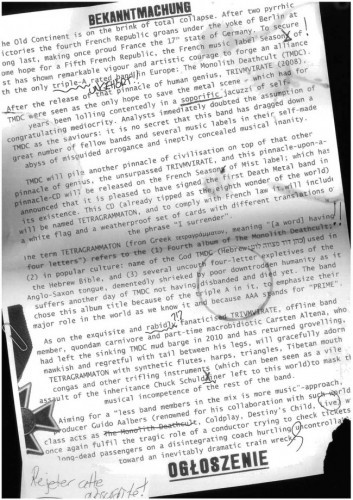 BEKANNTMACHUNG
The Old Continent is on the brink of total collapse. After two pyrrhic
victories the fourth French Republic groans under the yoke of Berlin at
long last, making once proud France the 17th state of Germany. To secure
some hope for a Fifth French Republic, the French music label Season of
Mist has shown remarkable vigour and artistic courage to forge an alliance
with the only triple-A rated band in Europe: The Monolith Deathcult (TMDC).
After the release of that pinnacle of human genius, TRIVMVIRATE (2008),
TMDC were seen as the only hope to save the metal scene which had for
years been lolling contentedly in a soporific jacuzzi of self-
congratulating mediocrity. Analysts immediately doubted the assumption of
TMDC as the saviours: it is no secret that this band has dragged down a
great number of fellow bands and several music labels in their self-made
abyss of misguided arrogance and ineptly concealed musical insanity.
TMDC will pile another pinnacle of civilisation on top of that other
pinnacle of genius, the unsurpassed TRIVMVIRATE, and this pinnacle-upon-a-
pinnacle-CD will be released on the French Season of Mist label; which has
announced that it is pleased to have signed the first Death Metal band in
its existence. This CD (already tipped as the eighth wonder of the world)
will be named TETRAGRAMMATON, and to comply with French law will include
a white flag and a weatherproof set of cards with different translations of
the phrase "I surrender"
The term TETRAGRAMMATON (from Greek "[a word] having
four letters") refers to the (1) Fourth album of The Monolith Deathcult;
(2) in popular culture: name of the God TMDC (Hebrew:
the Hebrew Bible, and (3) several uncouth four-letter expletives of the
Anglo-Saxon tongue, dementedly shrieked by poor downtrodden humanity as it
suffers another day of TMDC not having disbanded and died yet. The band
chose this album title because of the triple A in it, to emphasize their
major role in the world as we know it and because AAA stands for "PRIME"
As on the exquisite and rabid TRIVMVIRATE, offline band
member, quondam carnivore and part-time macrobiotic Carsten Altena, who
had left the sinking TMDC mud barge in 2010 and has returned grovelling,
mawkish and regretful with tail between his legs, will gracefully adorn
TETRAGRAMMATON with synthetic flutes, harps, triangles, Tibetan mouth
congas and other trifling instruments (which can been seen as a vile
assault of the inheritance Chuck Schuldiner left to this world) to mask the
musical incompetence of the rest of the band.
Aiming for a "less band members in the mix is more music"-approach,
producer Guido Aalbers (renowned for his collaboration with such world
class acts as The Monolith Deathcult, Coldplay, Destiny's Child, Live)
once again fulfil the tragic role of a conductor trying to check tickets
long-dead passengers on a disintegrating coach hurtling uncontrollably
toward an inevitably dramatic train wreck.
OGŁOSZENIE
Rejeter cette